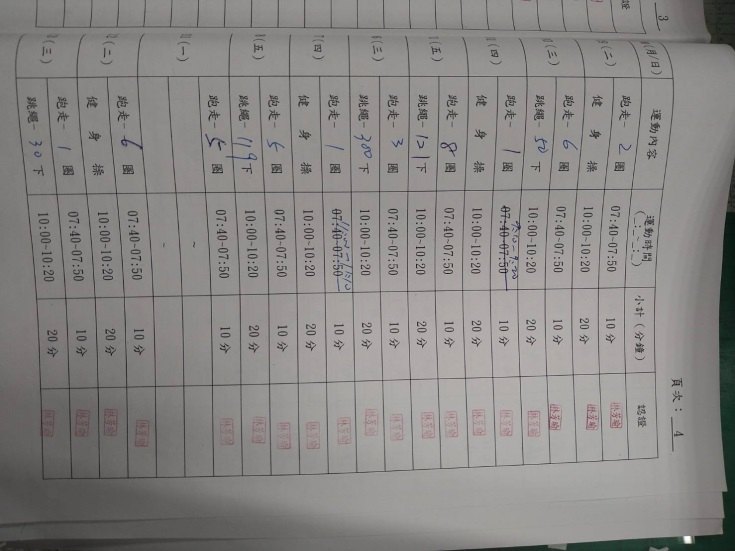 3
證
頁次：4
(月/日) 運動內容 運動時間 (_:_~_:_) 小計(分鐘) 認證
(二) 跑走- 2 圈 07:40-07:50 10分
健身操 10:00-10:20 20分
(三) 跑走- 6 圈 07:40-07:50 10分
跳繩- 50 下 10:00-10:20 20分
(四) 跑走- 1 圈 07:40-07:50 10分
健身操 10:00-10:20 20分
(五) 跑走- 8 圈 07:40-07:50 10分
跳繩- 121 下 10:00-10:20 20分
(三) 跑走- 3 圈 07:40-07:50 10分
跳繩- 300 下 10:00-10:20 20分
(四) 跑走- 1 圈 07:40-07:50 10分
健身操 10:00-10:20 20分
(五) 跑走- 5 圈 07:40-07:50 10分
跳繩- 119 下 10:00-10:20 20分
跑走- 5 圈 07:40-07:50 10分
~
(一) ~
(二) 跑走- 6 圈 07:40-07:50 10分
健身操 10:00-10:20 20分
(三) 跑走- 1 圈 07:40-07:50 10分
跳繩- 30 下 10:00-10:20 20分